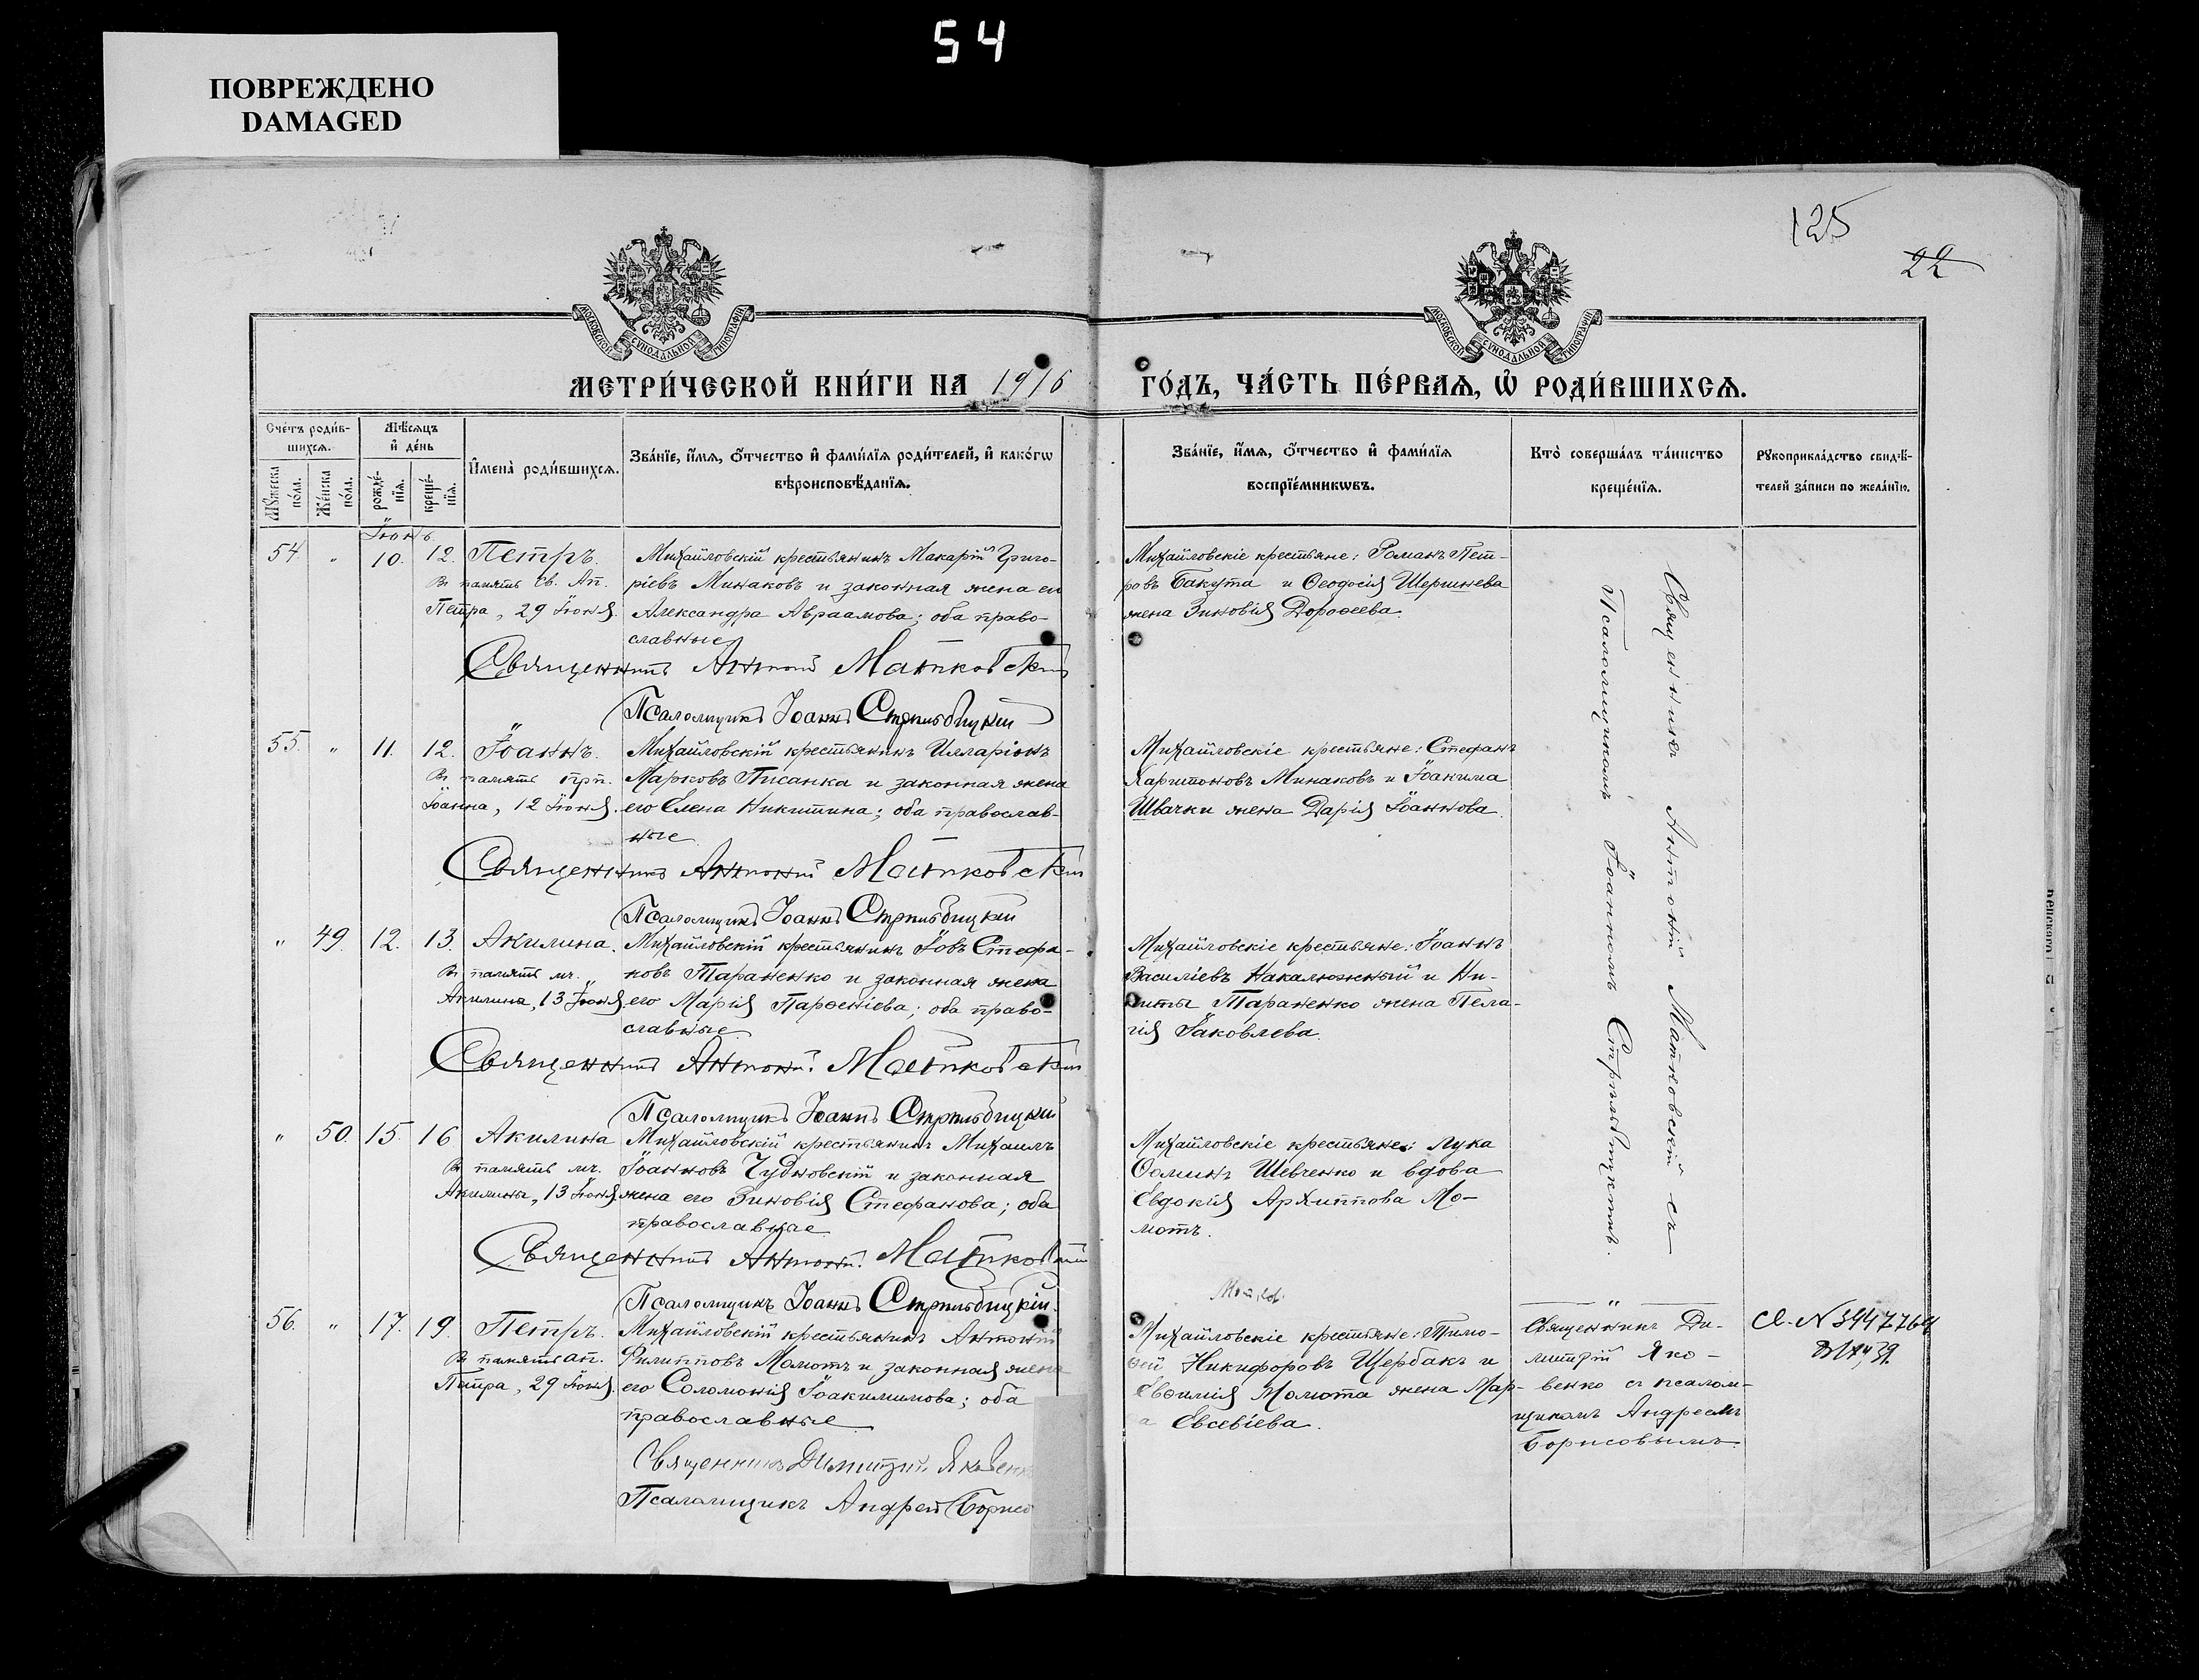 54
ПОВРЕЖДЕНО
DAMAGED
125
22
МОСКОВСКОЙ СУНОДАЛЬНОЙ ТИПОГРАФІИ
МОСКОВСКОЙ СУНОДАЛЬНОЙ ТИПОГРАФІИ
МЕТРИ́ЧЕСКОЙ КНИ́ГИ НА 1916
ГО́ДЪ, ЧА́СТЬ ПЕ́РВАѦ, Ѡ҆ РОДИ́ВШИХСѦ.
Сче́тъ роди́в-
шихсѧ.
Мѣ́сѧцъ
и҆ де́нь
Мꙋ́жеска
по́ла.
Же́нска
по́ла.
рожде́-
нїѧ.
креще́-
нїѧ.
И҆мена̀ роди́вшихсѧ.
Зва́нїе, и҆́мѧ, ѻ҆́тчество и҆ фами́лїѧ роди́телей, и҆ како́гѡ
вѣроисповѣ́данїѧ.
Зва́нїе, и҆́мѧ, ѻ҆́тчество и҆ фами́лїѧ
воспрїе́мникѡвъ.
Кто̀ соверша́лъ та́инство
креще́нїѧ.
Рꙋкоприкла́дство свидѣ́-
телей за́писи по жела́нїю.
Іюнь
54. " 10. 12. Петръ.
Въ память Св. Ап.
Петра, 29 Іюня.
Михайловскій крестьянинъ Макарій Григо-
ріевъ Минаковъ и законная жена его
Александра Авраамова; оба право-
славные
Священникъ Антоній Матковскій
Псаломщикъ Іоаннъ Стрильбицкій
Михайловскіе крестьяне: Романъ Пет-
ровъ Бакута и Ѳеодосія Шершнева
жена Зиновія Дороѳеева.
55. " 11. 12. Іоаннъ.
Въ память прп.
Іоанна, 12 Іюня.
Михайловскій крестьянинъ Илларіонъ
Марковъ Писанка и законная жена
его Елена Никитина; оба православ-
ные
Священникъ Антоній Матковскій
Псаломщикъ Іоаннъ Стрильбицкій
Михайловскіе крестьяне: Стефанъ
Харитоновъ Минаковъ и Іоакима
Швачки жена Дарія Іоаннова.
" 49. 12. 13. Акилина.
Въ память мч.
Акилина, 13 Іюня.
Михайловскій крестьянинъ Іовъ Стефа-
новъ Тараненко и законная жена
его Марія Парѳеніева; оба право-
славные
Священникъ Антоній Матковскій
Псаломщикъ Іоаннъ Стрильбицкій
Михайловскіе крестьяне: Іоаннъ
Василіевъ Накалюжный и Ни-
киты Тараненко жена Пела-
гія Іаковлева.
" 50. 15. 16 Акилина
Въ память мч.
Акилины, 13 Іюня
Михайловскій крестьянинъ Михаилъ
Іоанновъ Чудновскій и законная
жена его Зиновія Стефанова; оба
православные
Священникъ Антоній Матковскій
Псаломщикъ Іоаннъ Стрильбицкій.
Михайловскіе крестьяне: Лука
Ѳоминъ Шевченко и вдова
Евдокія Архиппова Мо-
мотъ.
Священникъ Антоній Матковскій съ
Псаломщикомъ Іоанномъ Стрильбицкимъ.
56. " 17. 19. Петръ.
Въ память ап.
Петра, 29 Іюня.
Михайловскій крестьянинъ Антоній
Филипповъ Момотъ и законная жена
его Соломонія Іоакимимова; оба
православные
Священникъ Димитрій Яковенк
Псаломщикъ Андрей Борисо
Михайловскіе крестьяне: Тимо-
ѳей Никифоровъ Щербакъ и
Евѳимія Момота жена Мар-
а Евсевіева.
"
Священникъ Ди-
митрій Яко-
венко съ псалом-
щикомъ Андреемъ
Борисовымъ.